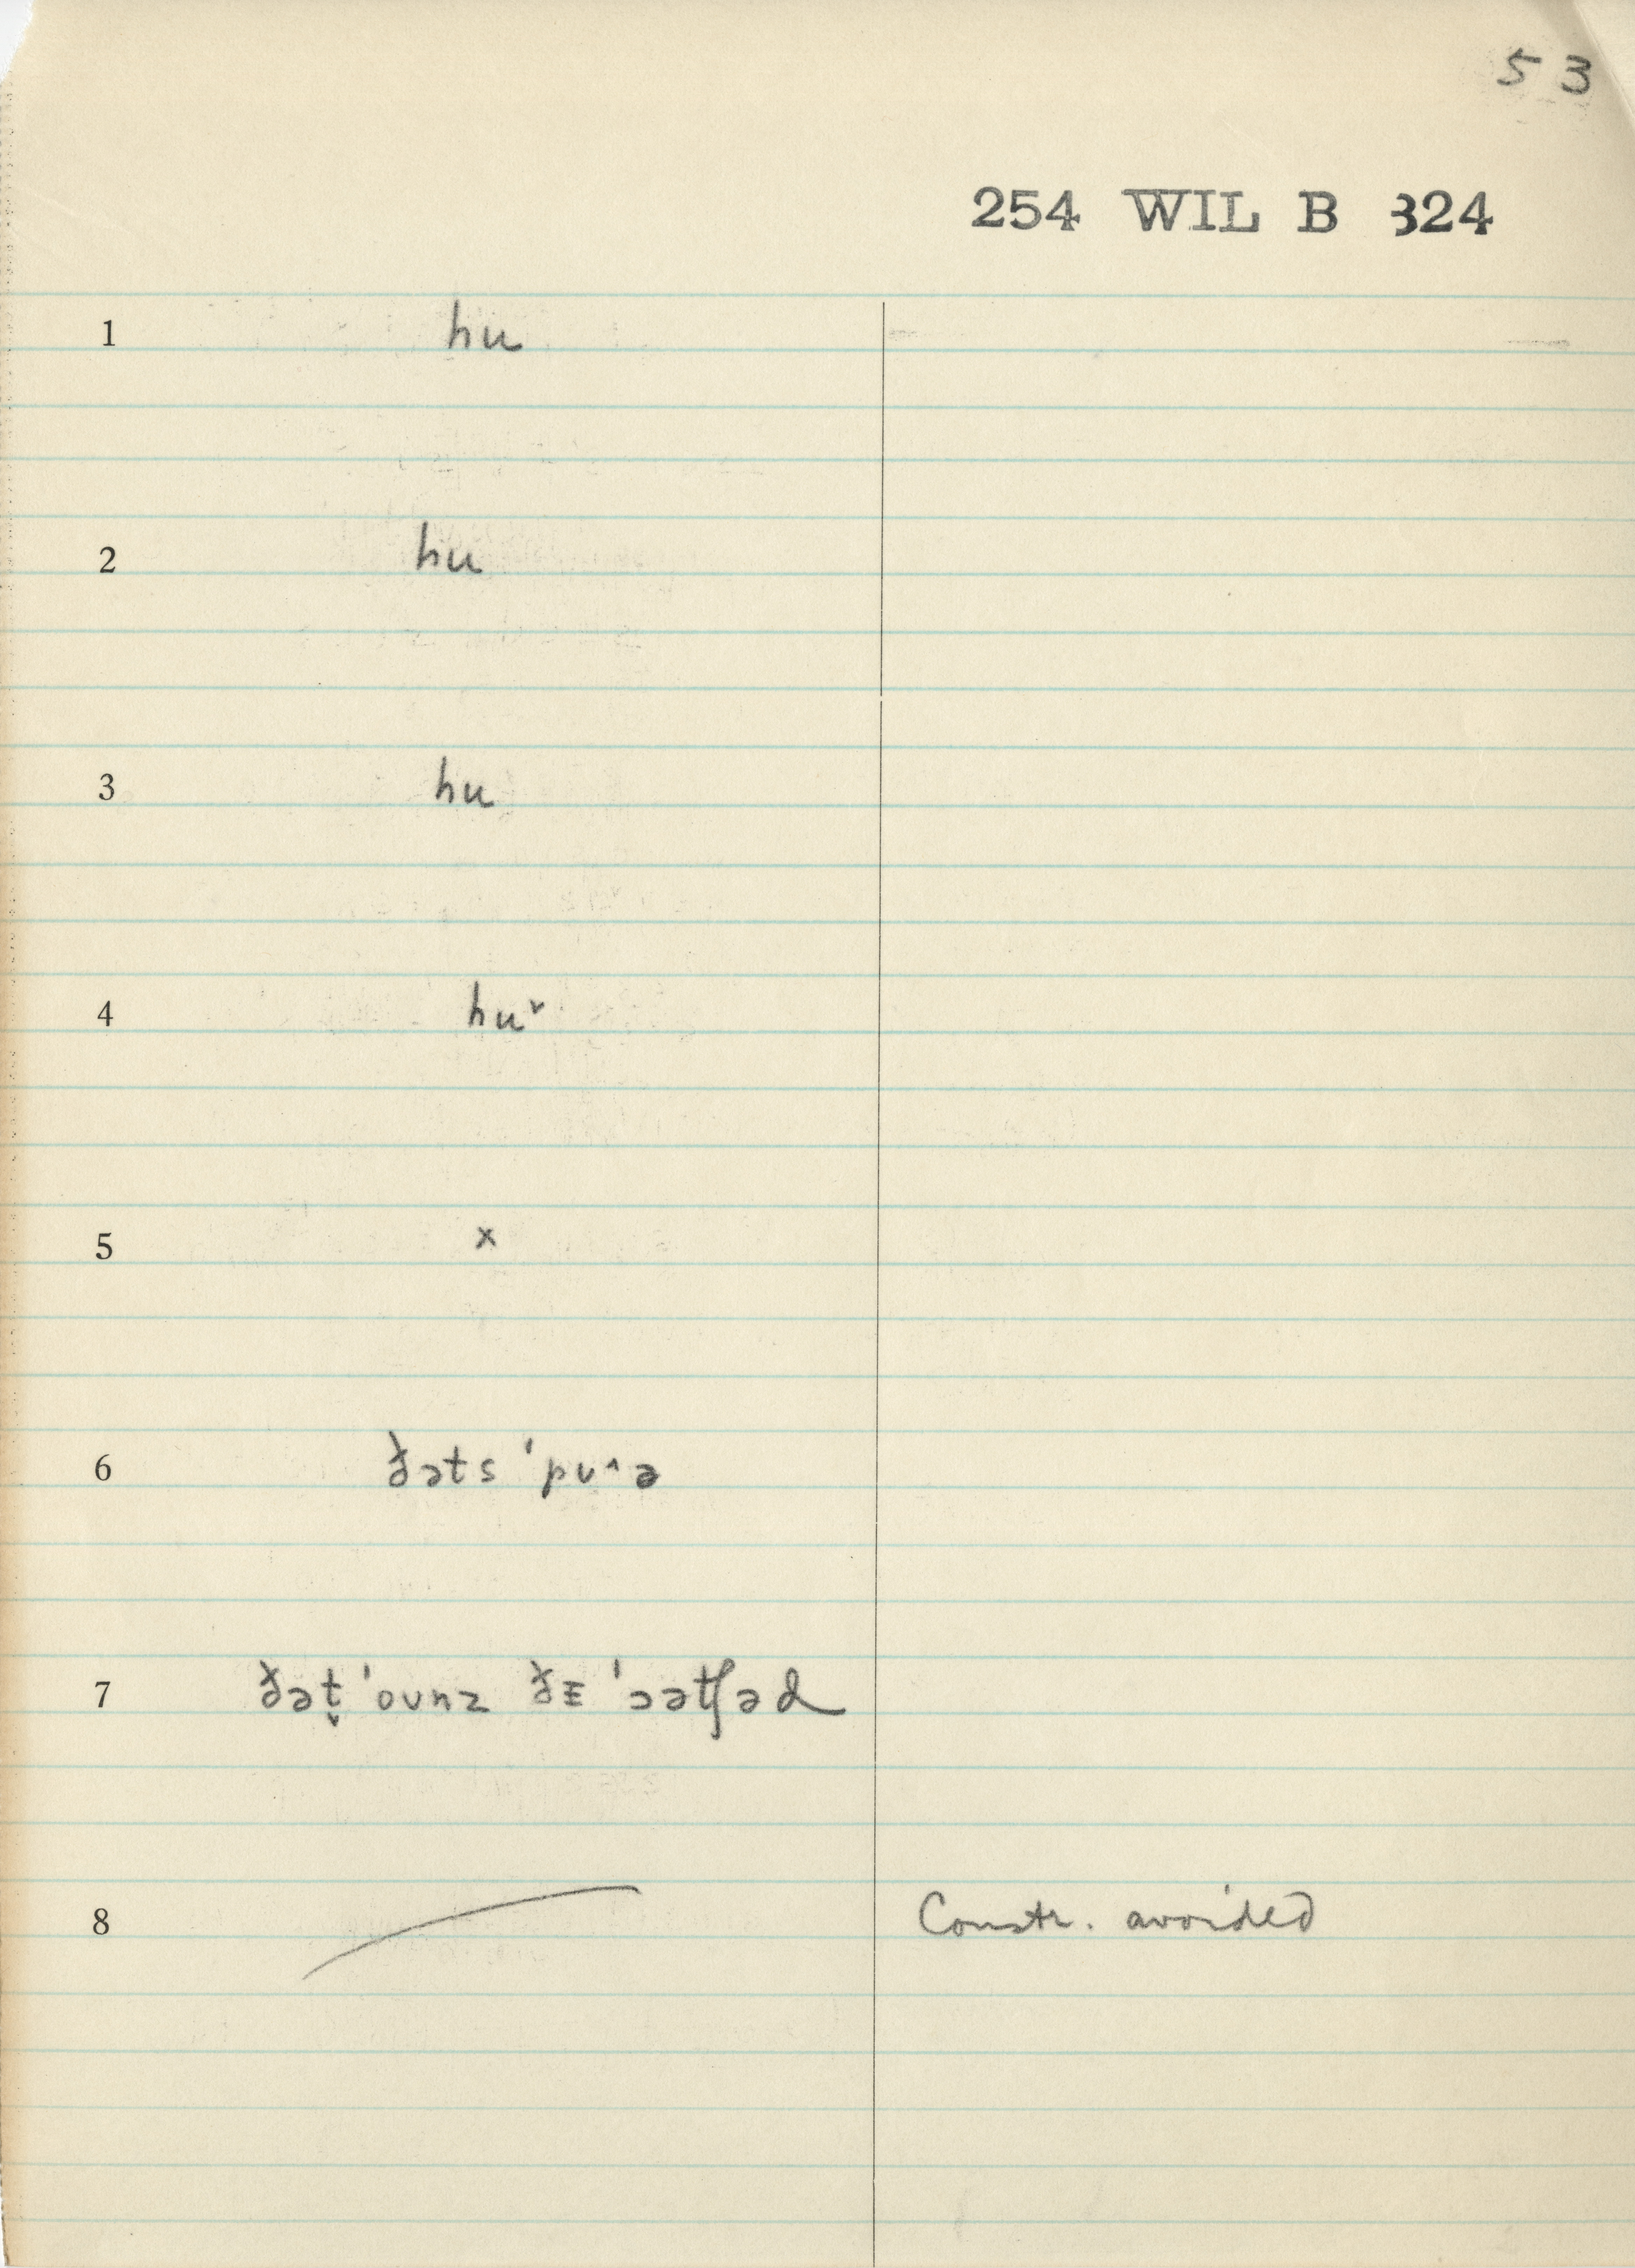 53
254 WIL B 324
1 hu
2 hu
3 hu
4 hu˅
5 x
6 ðəts ˈpʊ^ə
7 ðət̬ ˈoʊnz ðᴇ ˈɔətʃəd
8 Constr. avoided